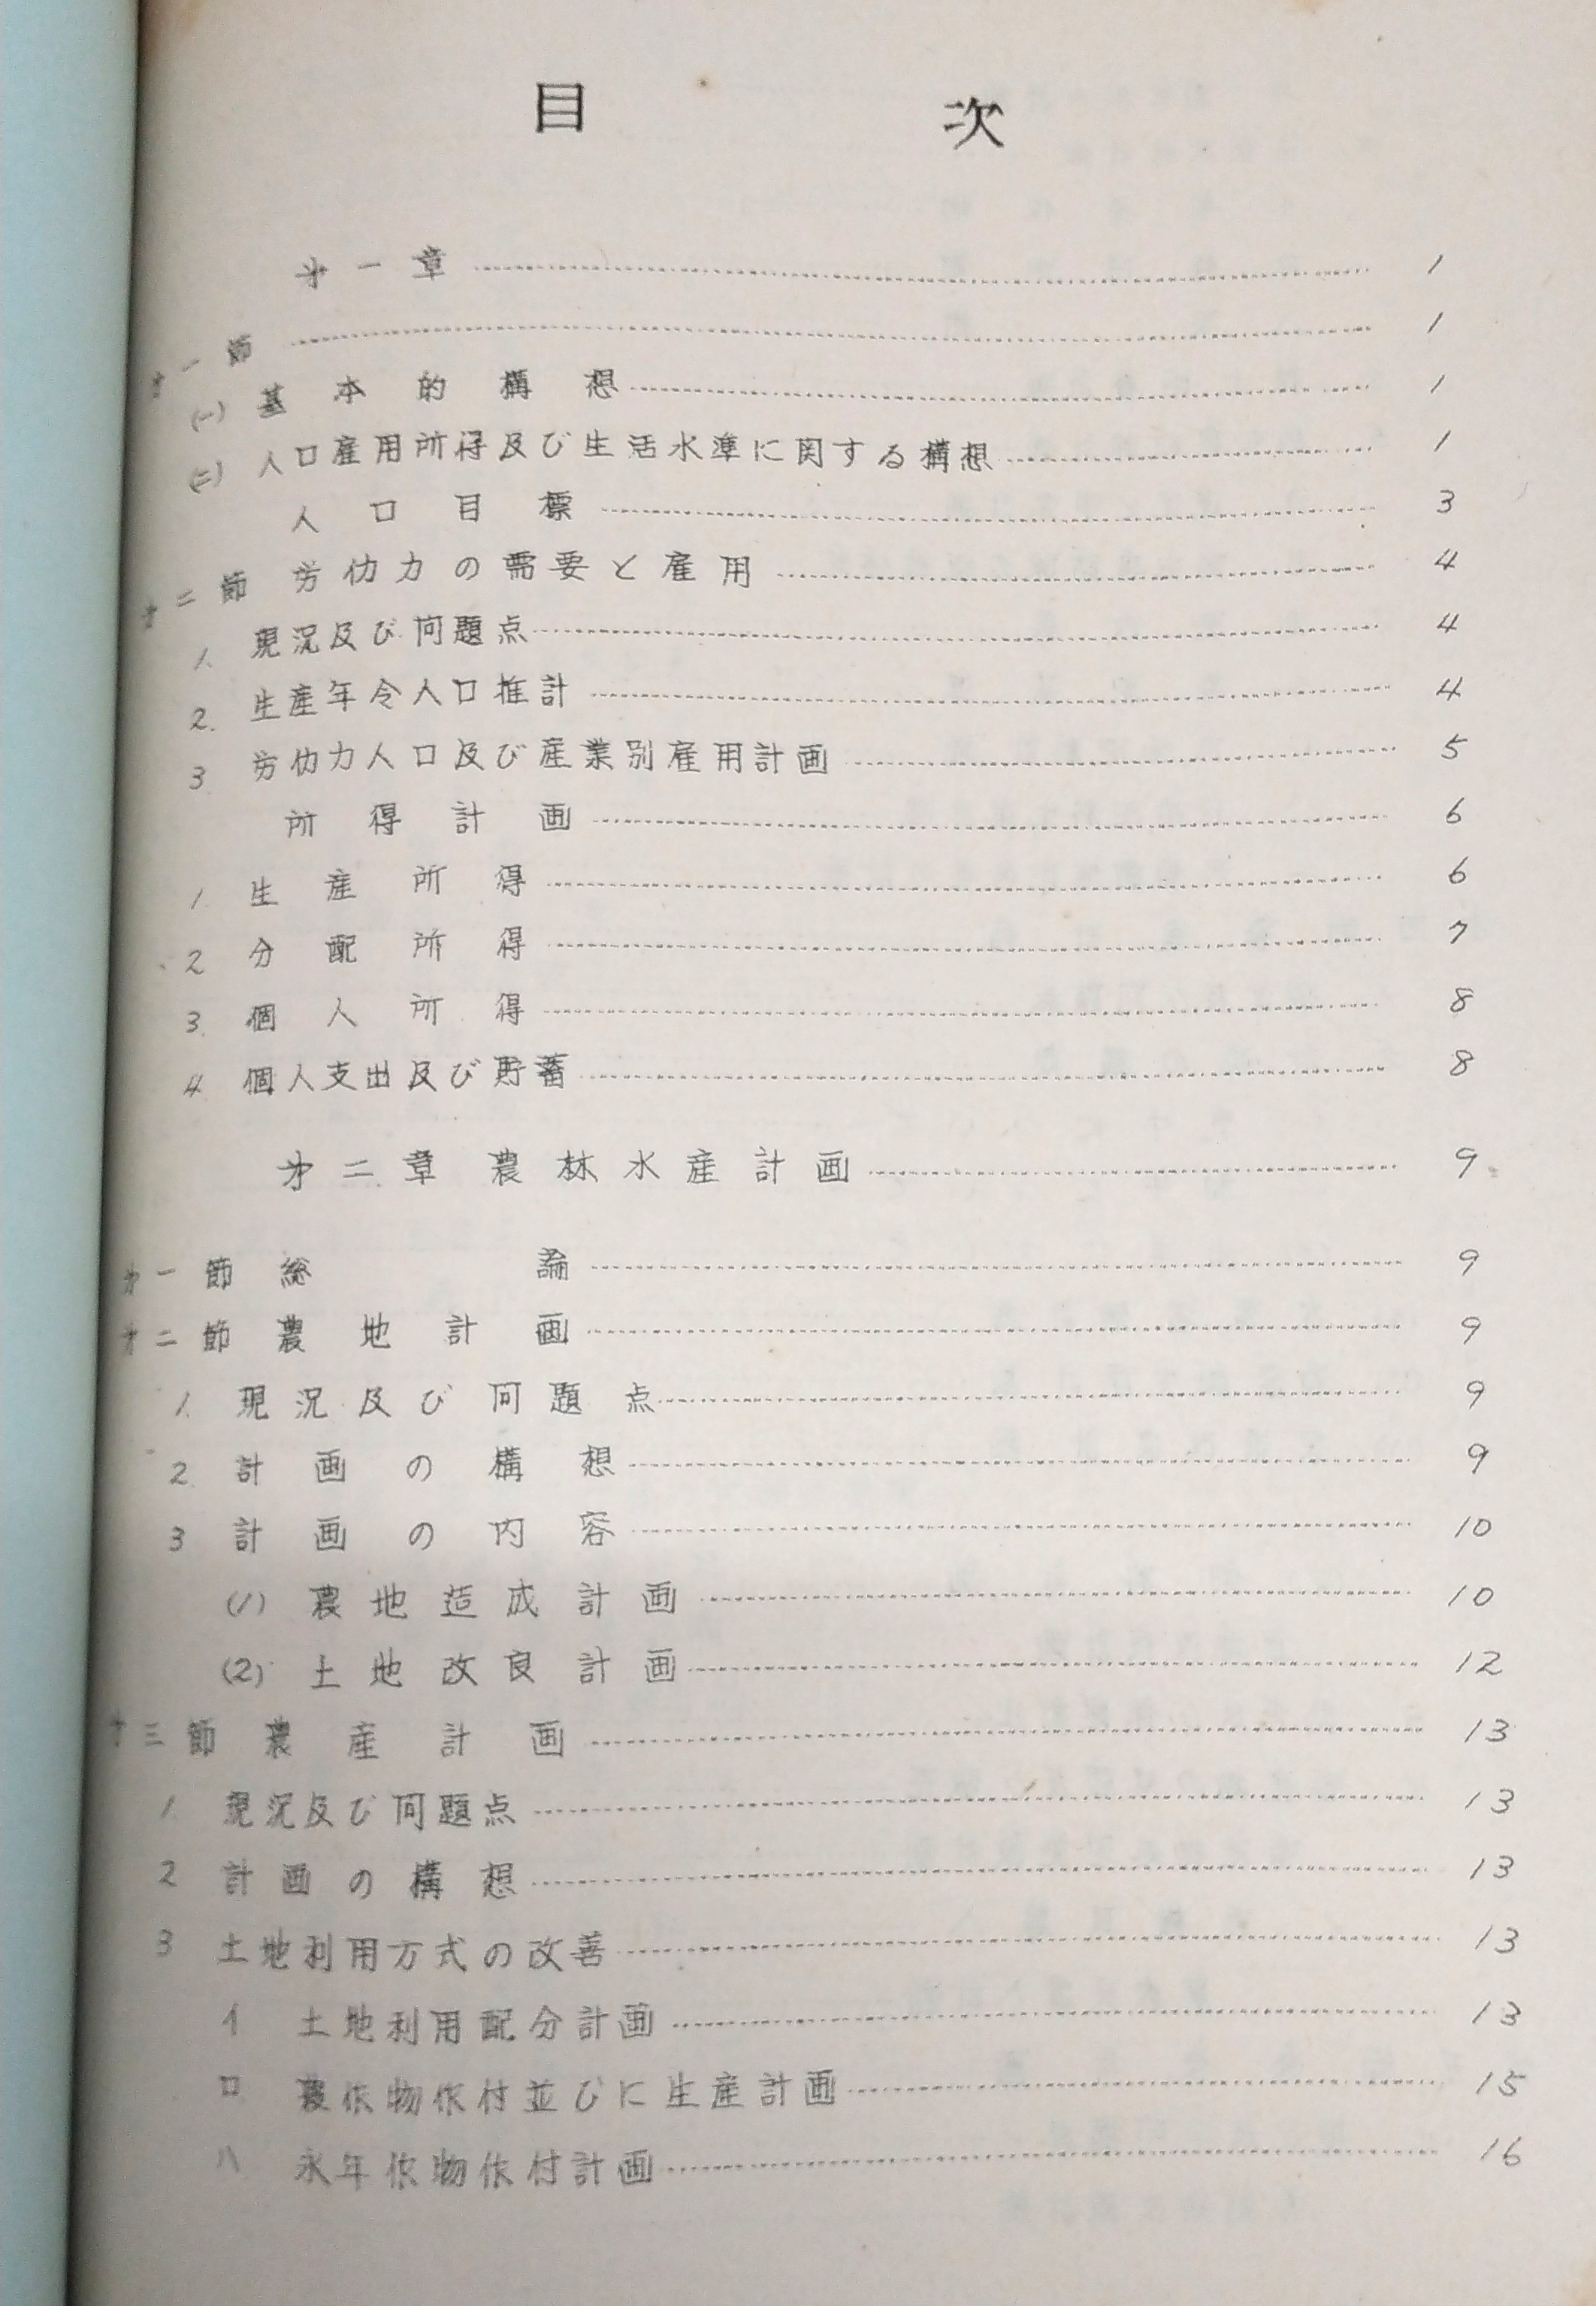 目次
才一章 1
才一節 1
(一) 基本的構想 1
(二) 人口雇用所得及び生活水準に関する構想 1
人口目標 3
才二節 労仂力の需要と雇用 4
1. 現況及び問題点 4
2. 生産年令人口推計 4
3 労仂力人口及び産業別雇用計画 5
所得計画 6
1. 生産所得 6
2 分配所得 7
3. 個人所得 8
4 個人支出及び貯蓄 8
才二章 農林水産計画 9
才一節 総論 9
才二節 農地計画 9
1. 現況及び問題点 9
2. 計画の構想 9
3 計画の内容 10
(1) 農地造成計画 10
(2) 土地改良計画 12
才三節 農産計画 13
1. 現況及び問題点 13
2 計画の構想 13
3 土地利用方式の改善 13
イ 土地利用配分計画 13
ロ 農作物作付並びに生産計画 15
ハ 永年作物作付計画 16